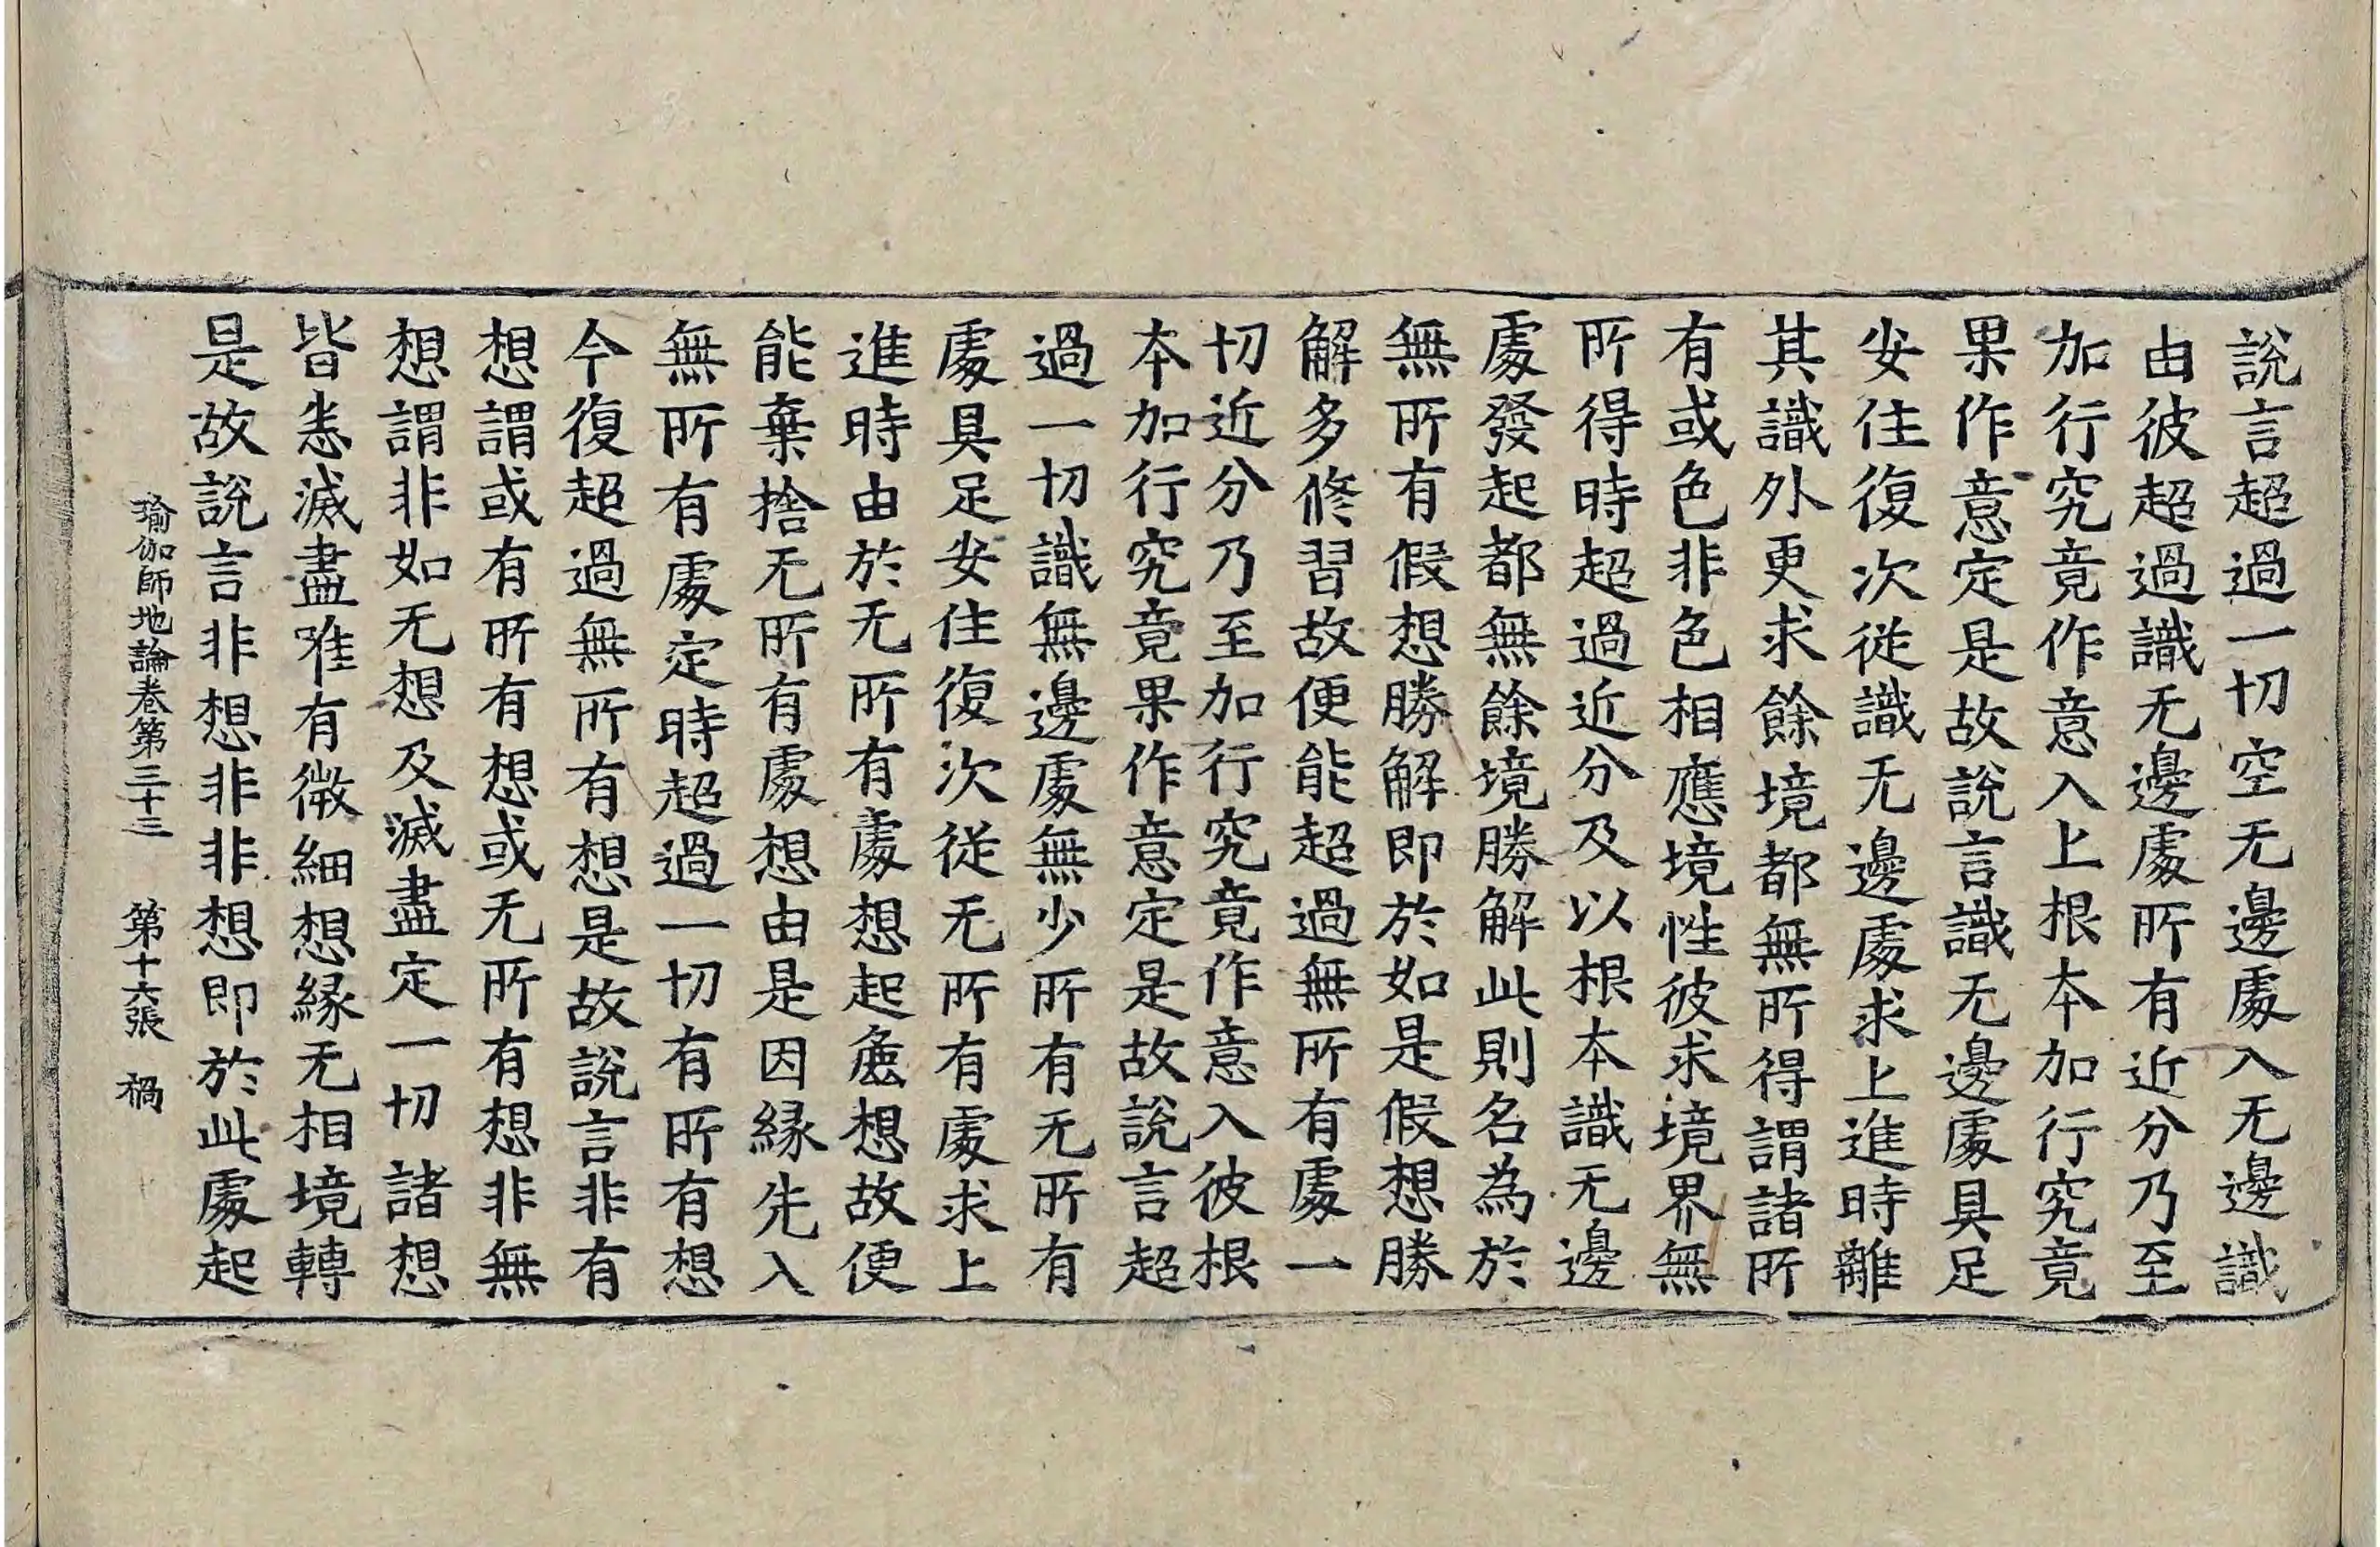 說言超過一切空无邊處入无邊識
由彼超過識无邊處所有近分乃至
加行究竟作意入上根本加行究竟
果作意定是故說言識无邊處具足
安住復次從識无邊處求上進時離
其識外更求餘境都無所得謂諸所
有或色非色相應境性彼求境界無
所得時超過近分及以根本識无邊
處發起都無餘境勝解此則名為於
無所有假想勝解即於如是假想勝
解多修習故便能超過無所有處一
切近分乃至加行究竟作意入彼根
本加行究竟果作意定是故說言超
過一切識無邊處無少所有无所有
處具足安住復次從无所有處求上
進時由於无所有處想起麁想故便
能棄捨无所有處想由是因縁先入
無所有處定時超過一切有所有想
今復超過無所有想是故說言非有
想謂或有所有想或无所有想非無
想謂非如无想及滅盡定一切諸想
皆悉滅盡唯有微細想縁无相境轉
是故說言非想非非想即於此處起
瑜伽師地論卷第三十三 第十六張 禍